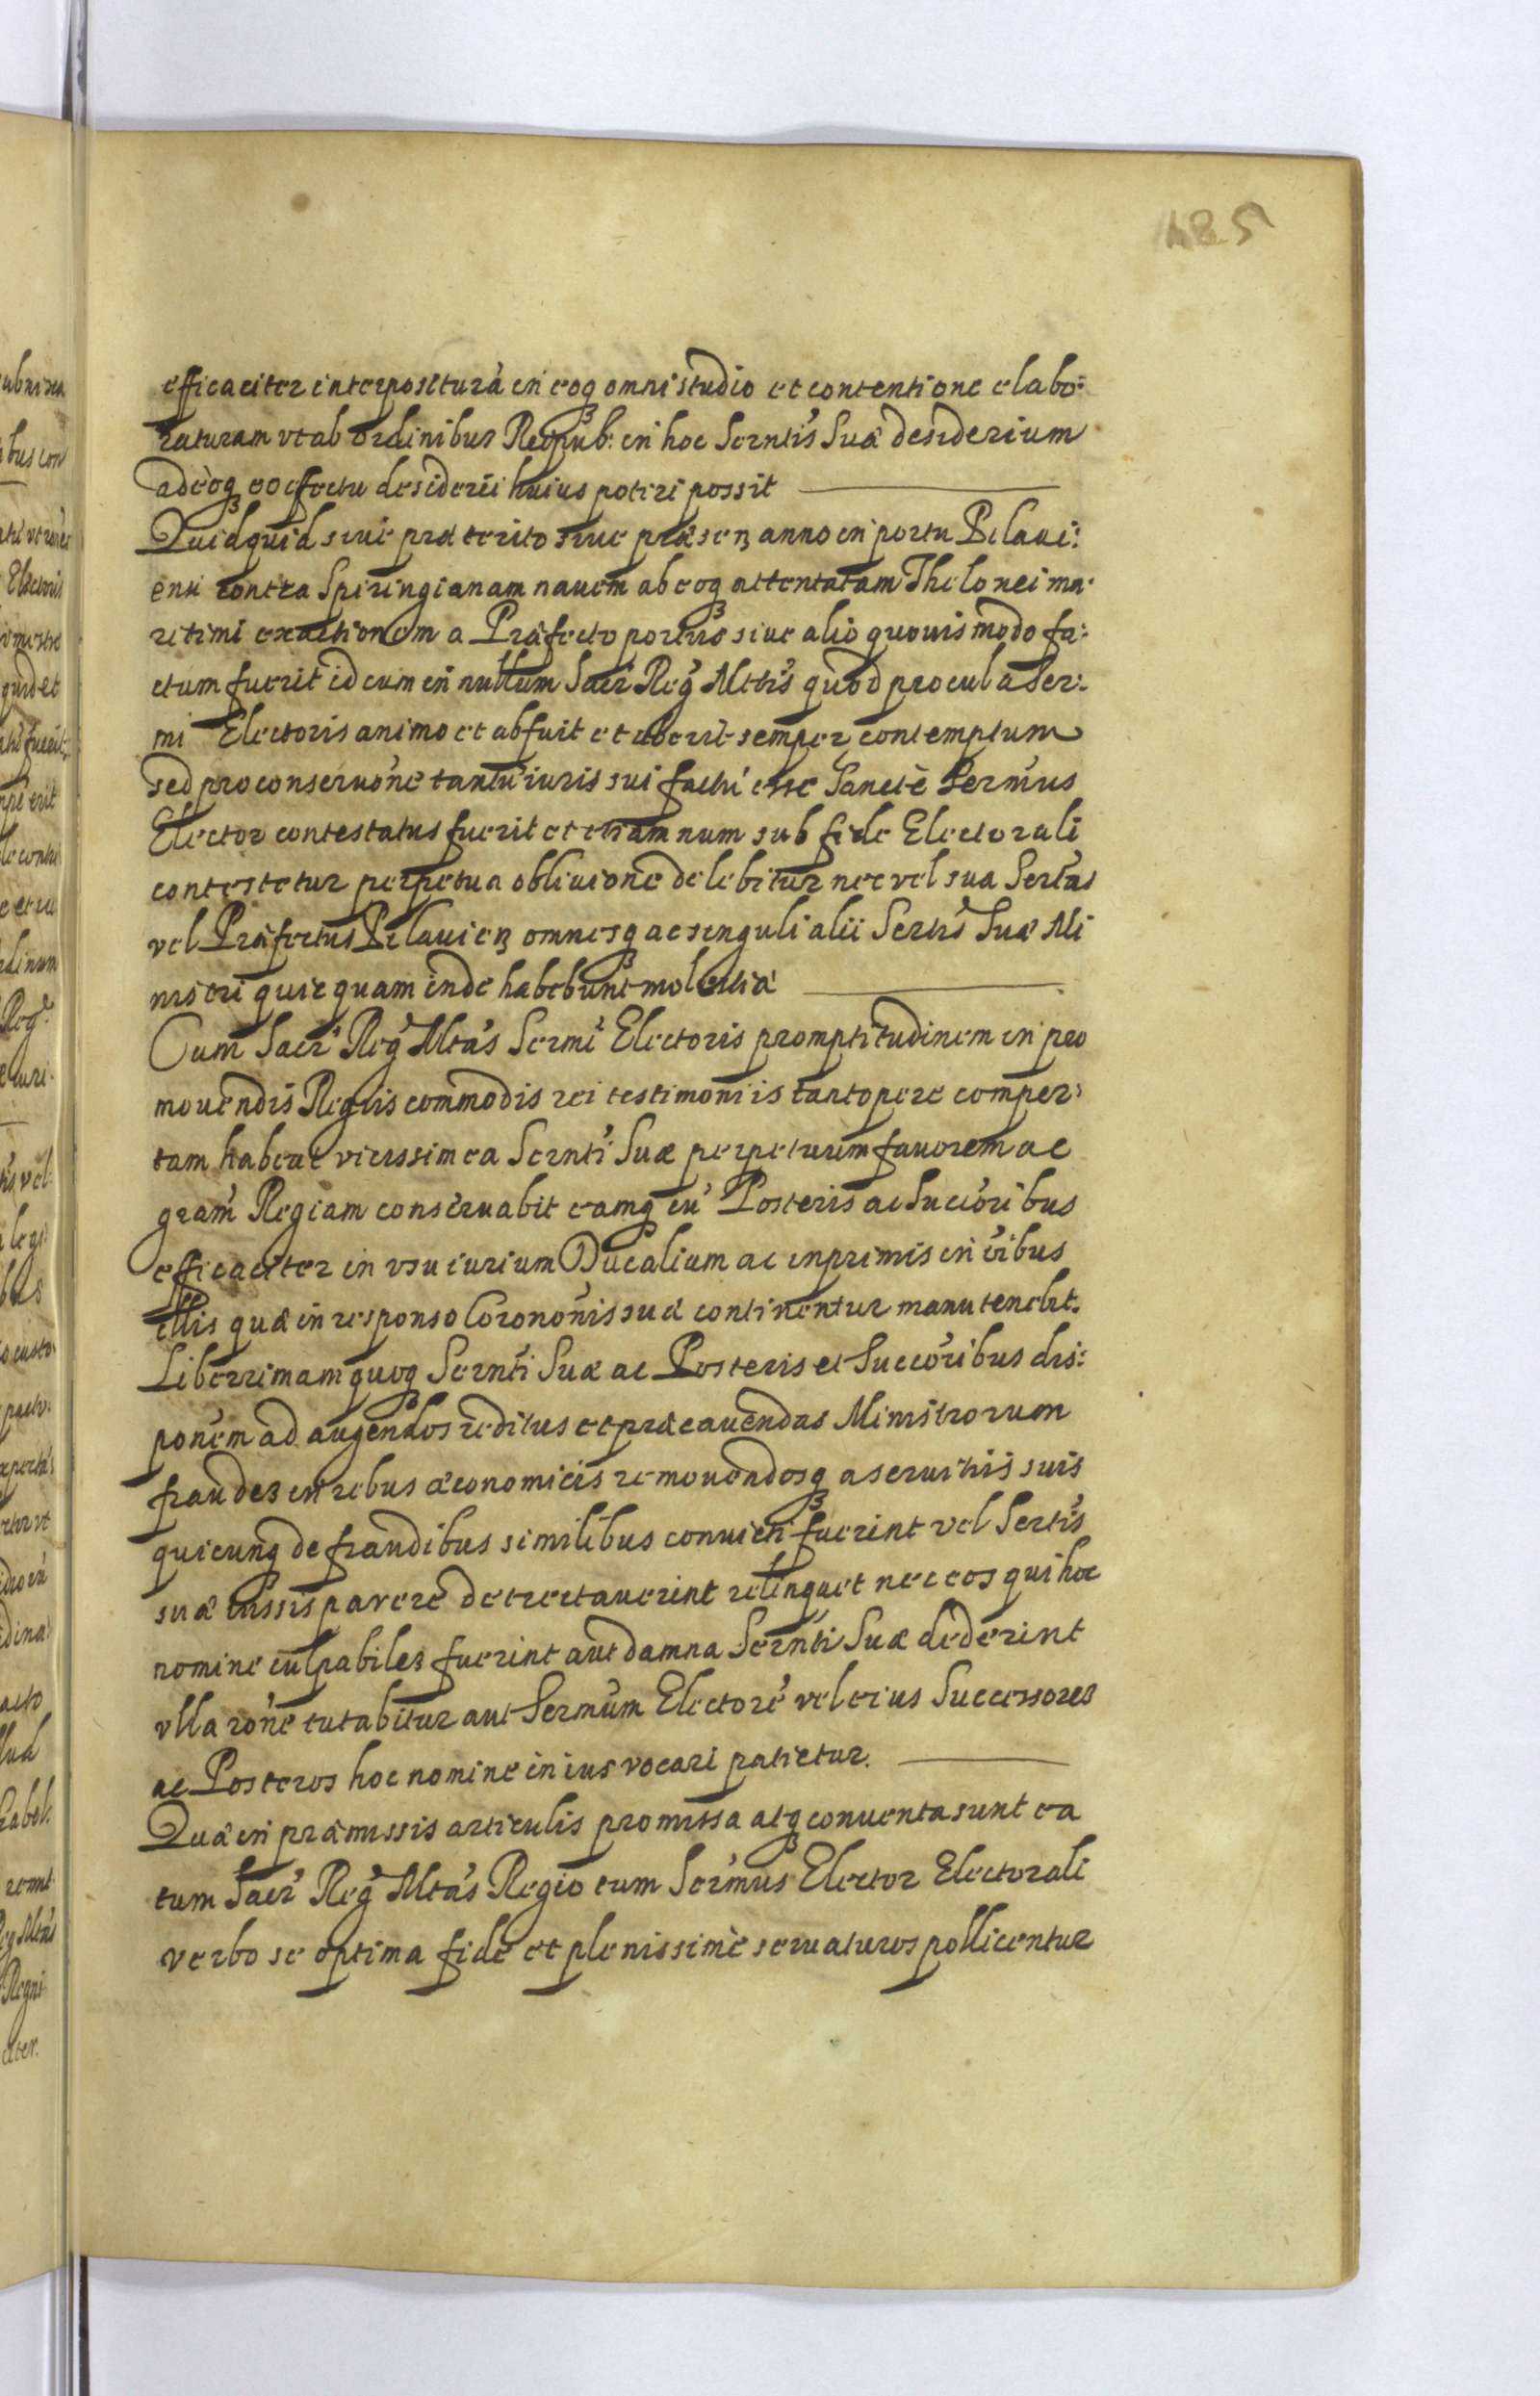 485
efficaciter interpositurā in eoq₃ omni studio et contentione elabo-
raturam vt ab Ordinibus Reipub: in hoc Serntis̀ Suæ desiderium
adeoq₃ eo effectu desiderii huius potiri possit
Quidquid siue præterito siue præsenz anno in portu Pilaui-
ensi contra Spiringianam nauem ab eoq₃ attentatam Thelonei ma-
ritimi exactionem a Præfecto portus siue alio quouis modo fa-
ctum fuerit id cum in nullum Sacr̀ Reg̀ Mttis̀ quod procul a Ser-
mi Electoris animo et abfuit et aberit semper contemptum
sed pro conseruōne tantū iuris sui factū esse Sanctè Sermùs
Elector contestatus fuerit et etiamnum sub fide Electorali
contestetur perpetua obliuione delebitur nec vel sua Sertas̀
vel Præfectus Pilauienz omnesq₃ ac singuli alii Sertis̀ Suæ Mi
nistri quicquam inde habebunt molestiæ
Cum Sacr̀ Reg̀ Mtas̀ Sermì Electoris promptitudinem in pro
mouendis Regiis commodis rei testimoniis tantopere comper-
tam habeat vicissim ea Serntì Suæ perpetuum fauorem ac
gram̀ Regiam conseruabit eamq₃ cū Posteris ac Succòribus
efficaciter in vsu iurium Ducalium ac inprimis in iìbus
illis quæ in responso Coronōnis suæ continentur manutenebt.
Liberrimam quoq₃ Serntì Suæ ac Posteris et Succòribus dis-
ponēm ad augendos reditus et præcauendas Ministrorum
fraudes in rebus œconomicis remouendosq₃ a seruitiis suis
quicunq₃ de fraudibus similibus conuicti fuerint vel Sertis̀
suæ iussis parere detrectauerint relinquet nec eos qui hoc
nomine culpabiles fuerint aut damna Serntì Suæ dederint
vlla rōne tutabitur aut Sermùm Electorē vel eius Successores
ac Posteros hoc nomine in ius vocari patietur.
Quæ in præmissis articulis promissa atq₃ conuenta sunt ea
tum Sacr̀ Reg̀ Mtas̀ Regio tum Sermùs Elector Electorali
verbo se optima fide et plenissimè seruaturos pollicentur